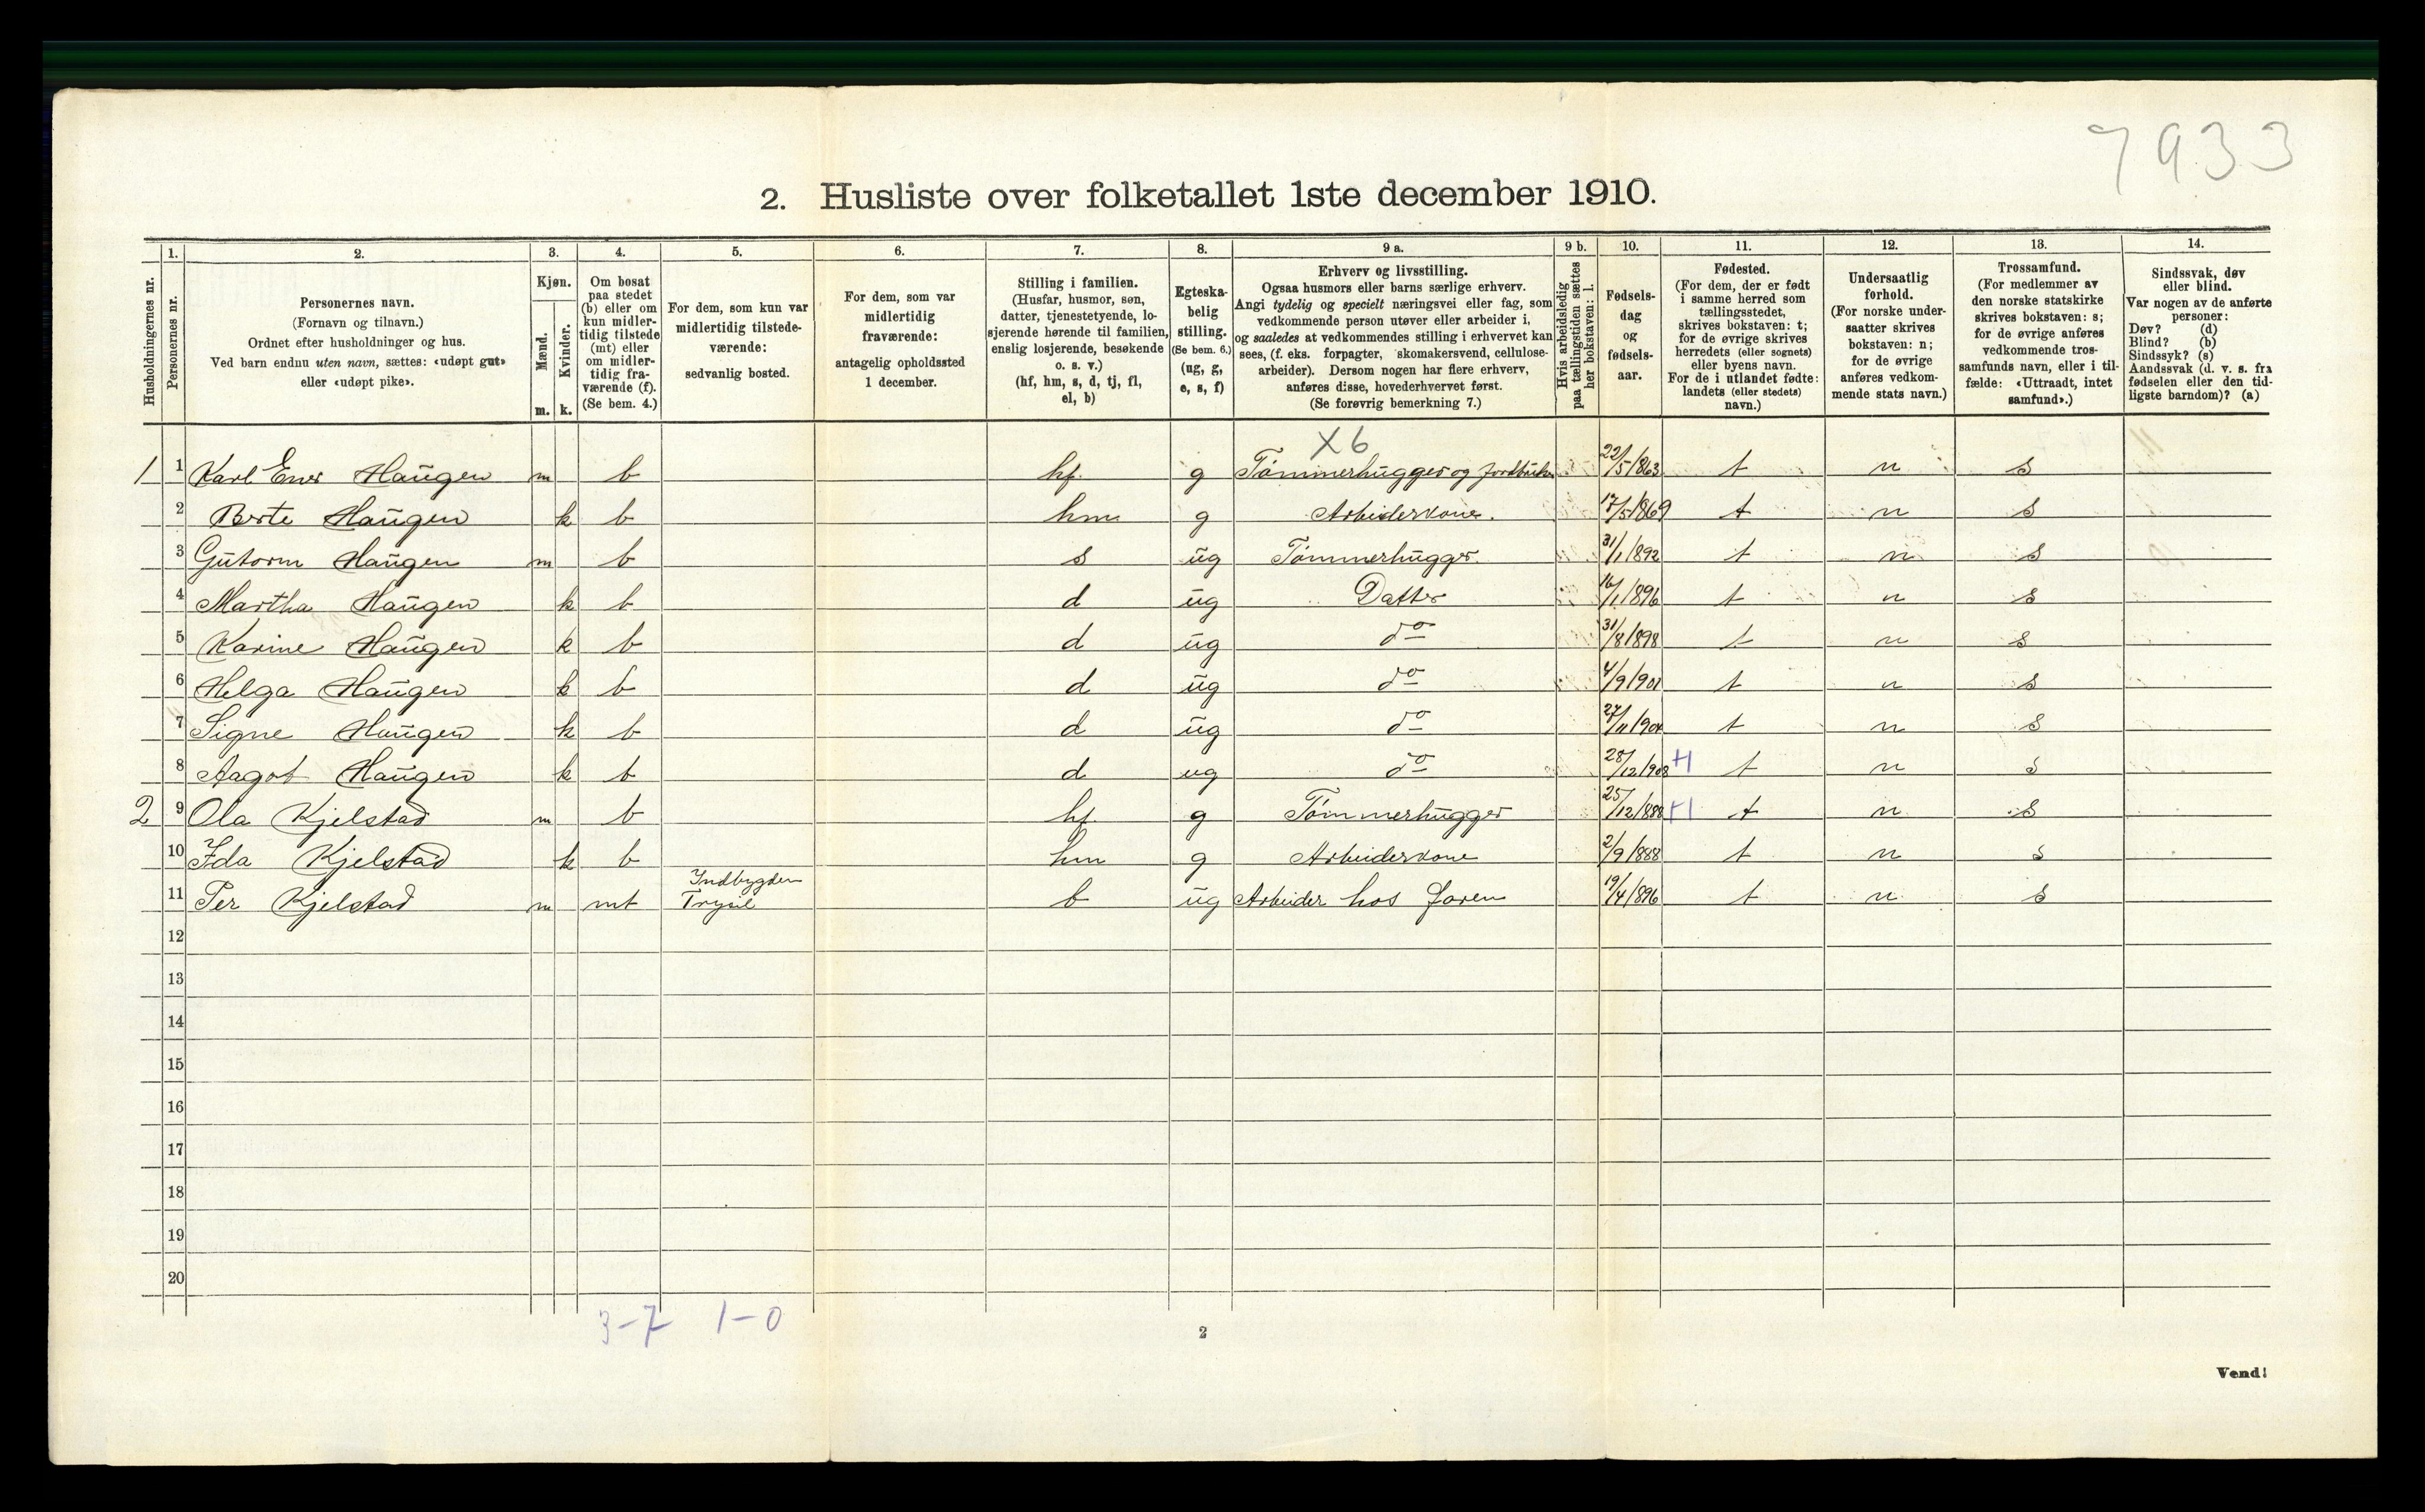 7933
2. Husliste over folketallet 1ste december 1910.
Husholdningernes nr.
1.
Personernes nr.
2.
Personernes navn.
(Fornavn og tilnavn.)
Ordnet efter husholdninger og hus.
Ved barn endnu uten navn, sættes: «udøpt gut»
eller «udøpt pike».
3.
Kjøn.
Mænd.
Kvinder.
m. k.
4.
Om bosat
paa stedet
(b) eller om
kun midler-
tidig tilstede
(mt) eller
om midler-
tidig fra-
værende (f).
(Se bem. 4.)
5.
For dem, som kun var
midlertidig tilstede-
værende:
sedvanlig bosted.
6.
For dem, som var
midlertidig
fraværende:
antagelig opholdssted
1 december.
7.
Stilling i familien.
(Husfar, husmor, søn,
datter, tjenestetyende, lo-
sjerende hørende til familien,
enslig losjerende, besøkende
o. s. v.)
(hf, hm, s, d, tj, fl,
el, b)
8.
Egteska-
belig
stilling.
(Se bem. 6.)
(ug, g,
e, s, f)
9 a.
Erhverv og livsstilling.
Ogsaa husmors eller barns særlige erhverv.
Angi tydelig og specielt næringsvei eller fag, som
vedkommende person utøver eller arbeider i,
og saaledes at vedkommendes stilling i erhvervet kan
sees, (f. eks. forpagter, skomakersvend, cellulose-
arbeider). Dersom nogen har flere erhverv,
anføres disse, hovederhvervet først.
(Se forøvrig bemerkning 7.)
9 b.
Hvis arbeidsledig
paa tællingstiden sættes
her bokstaven: l.
10.
Fødsels-
dag
og
fødsels-
aar.
11.
Fødested.
(For dem, der er født
i samme herred som
tællingsstedet,
skrives bokstaven: t;
for de øvrige skrives
herredets (eller sognets)
eller byens navn.
For de i utlandet fødte:
landets (eller stedets)
navn.)
12.
Undersaatlig
forhold.
(For norske under-
saatter skrives
bokstaven: n;
for de øvrige
anføres vedkom-
mende stats navn.)
13.
Trossamfund.
(For medlemmer av
den norske statskirke
skrives bokstaven: s;
for de øvrige anføres
vedkommende tros-
samfunds navn, eller i til-
fælde: «Uttraadt, intet
samfund».)
14.
Sindssvak, døv
eller blind.
Var nogen av de anførte
personer:
Døv? (d)
Blind? (b)
Sindssyk? (s)
Aandssvak (d. v. s. fra
fødselen eller den tid-
ligste barndom)? (a)
X6
1 1 Karl Ener Haugen m b hf. g Tømmerhugger og jordbruker 22/5/863 t n s
2 Berte Haugen k b hm g Arbeiderkone. 17/5/869 t n s
3 Gutorm Haugen m b s ug Tømmerhugger. 31/1/892 t n s
4 Martha Haugen k b d ug Datter 16/1/896 t n s
5 Karine Haugen k b d ug do 31/8/898 t n s
6 Helga Haugen k b d ug do 4/9/901 t n s
7 Signe Haugen k b d ug do 27/11/904 t n s
8 Aagot Haugen k b d ug do 28/12/908 t n s
2 9 Ola Kjelstad m b hf. g Tømmerhugger 25/12/888 t n s
10 Ida Kjelstad k b hm g Arbeiderkone 2/9/888 t n s
Indbygden
11 Per Kjelstad m mt Trysil b ug Arbeider hos faren 19/4/896 t n s
12
13
14
15
16
17
18
19
20
3-7 1-0
2
Vend!